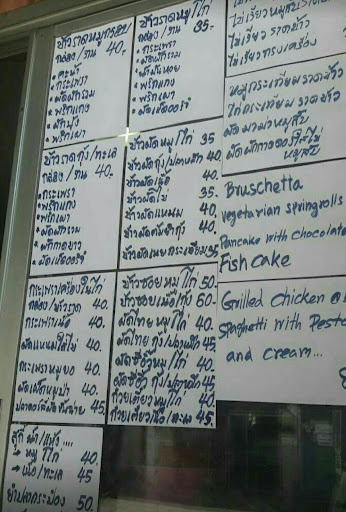 ข้าวราดหมูกรอบ
กล่อง/จาน 40.
• คะน้า
• กระเพรา
• ผัดผักรวม
• พริกแกง
• พริกเผา
ข้าวราดหมู/ไก่
35.
• กระเพรา
• ผัดผักรวม
• น้ำมันหอย
• พริกแกง
• พริกเผา
• ผัดเปรี้ยวหวาน
ไม่เรียว
ไข่เจียว ราดข้าว
ไข่เจียวทรงเครื่อง
หมูกระเทียมราดข้าว
ไก่กระเทียม ราดข้าว
ผัดมาม่าหมูสับ
ผัดผักกาดดองใส่ไข่
หมูสับ
ข้าวราด กุ้ง/ทะเล
กล่อง/จาน 40.
• กระเพรา
• พริกแกง
• พริกเผา
• ผัดผักรวม
• ผัดเปรี้ยวหวาน
ข้าวผัดหมู/ไก่ 35
ข้าวผัดกุ้ง/ปลาหมึก 40.
ข้าวผัด 40.
ข้าวผัดไข่ 35.
ข้าวผัดแหนม 40.
ข้าวผัด กุ้ง 40.
ข้าวผัด กระเทียม 35.
Bruschetta
vegetarian springrolls
Pancake with Chocolate
Fish cake
กระเพราเครื่องในไก่
กล่อง/ข้าวราด 40.
กระเพราเนื้อ 40.
ผัดแหนมใส่ไข่ 40.
กระเพราหมูยอ 40.
ผัดเผ็ดหมูป่า 40.
ปลาดอร์ลี่ผัดขึ้นฉ่าย 45.
ข้าวซอยหมู/ไก่ 50.
ข้าวซอยเนื้อ/กุ้ง 60.
ผัดไทย หมู/ไก่ 40.
ผัดไทย กุ้ง/ปลาหมึก 45
ผัดซีอิ๊วหมู/ไก่ 40.
ผัดซีอิ๊ว กุ้ง/ปลาหมึก 45
ก๋วยเตี๋ยวหมู/ไก่ 40.
ก๋วยเตี๋ยวเนื้อ/ทะเล 45.
Grilled Chicken
Spaghetti with Pesto
and cream...
สุกี้ น้ำ/แห้ง ....
→ หมู/ไก่ 40.
→ เนื้อ/ทะเล 45.
ยำปลากระป๋อง 50.